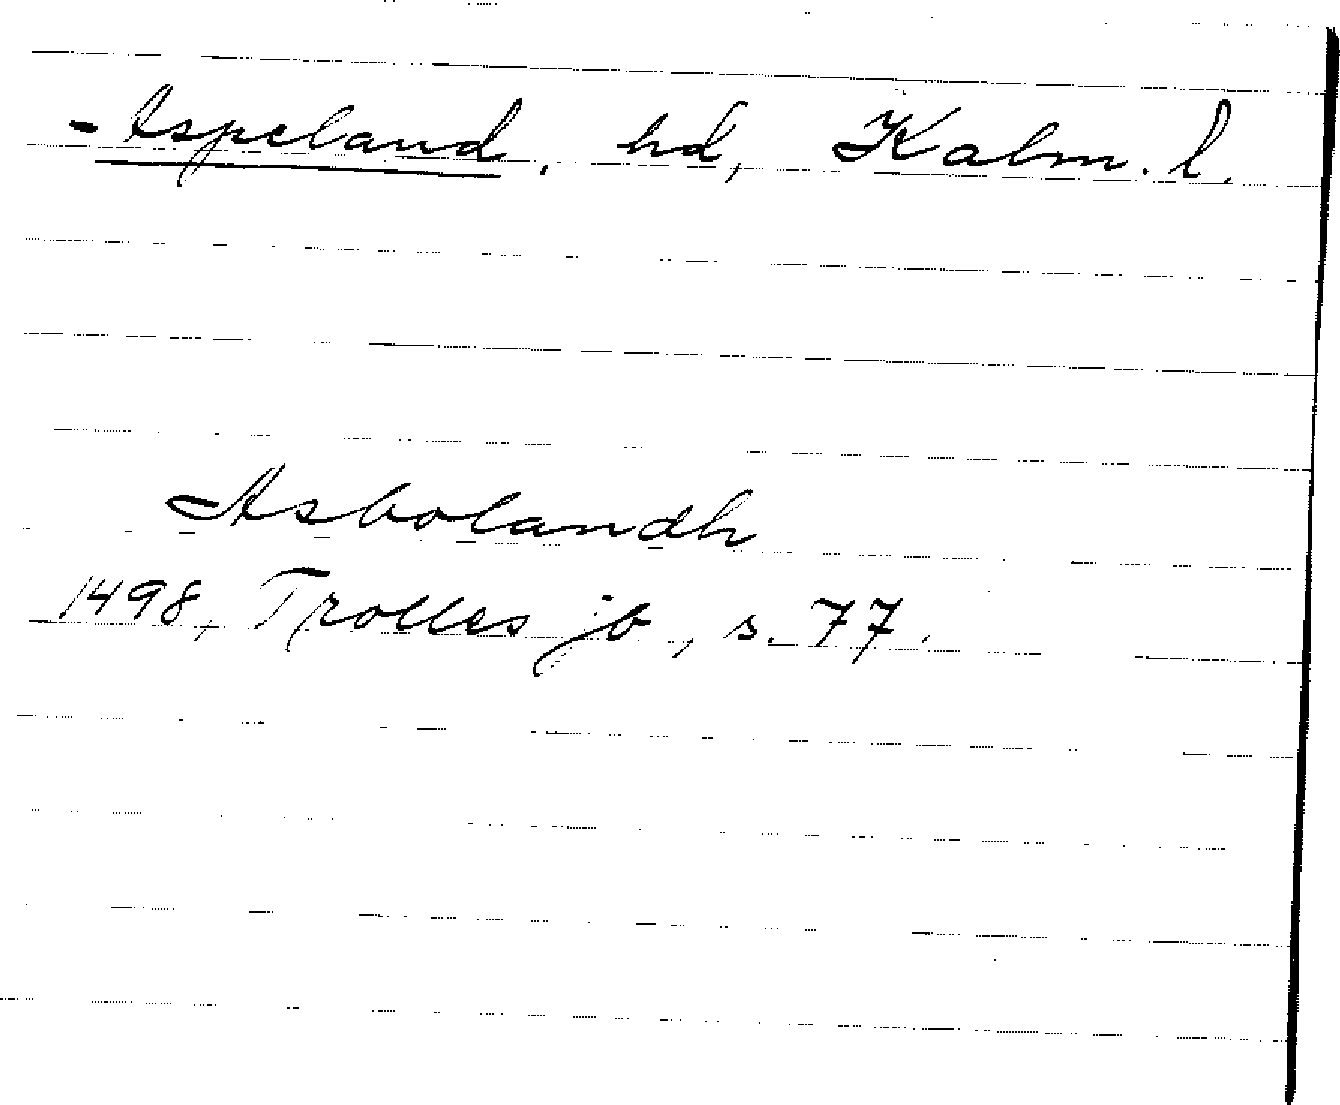 Aspeland, hd, Kalm. l.
Asbolandh
1498, Trolles jb, s. 77.